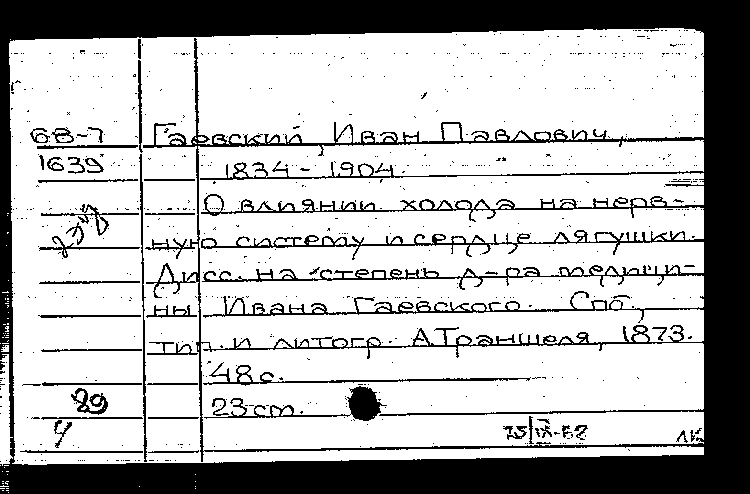 68-7 Гаевский, Иван Павлович,
1639 1834-1904.
О влиянии холода на нерв-
ную систему и сердце лягушки.
Дисс. на степень д-ра медици-
ны Ивана Гаевского. Спб.,
тип. и литогр. А.Траншеля, 1873.
48 с.
89 23 см.